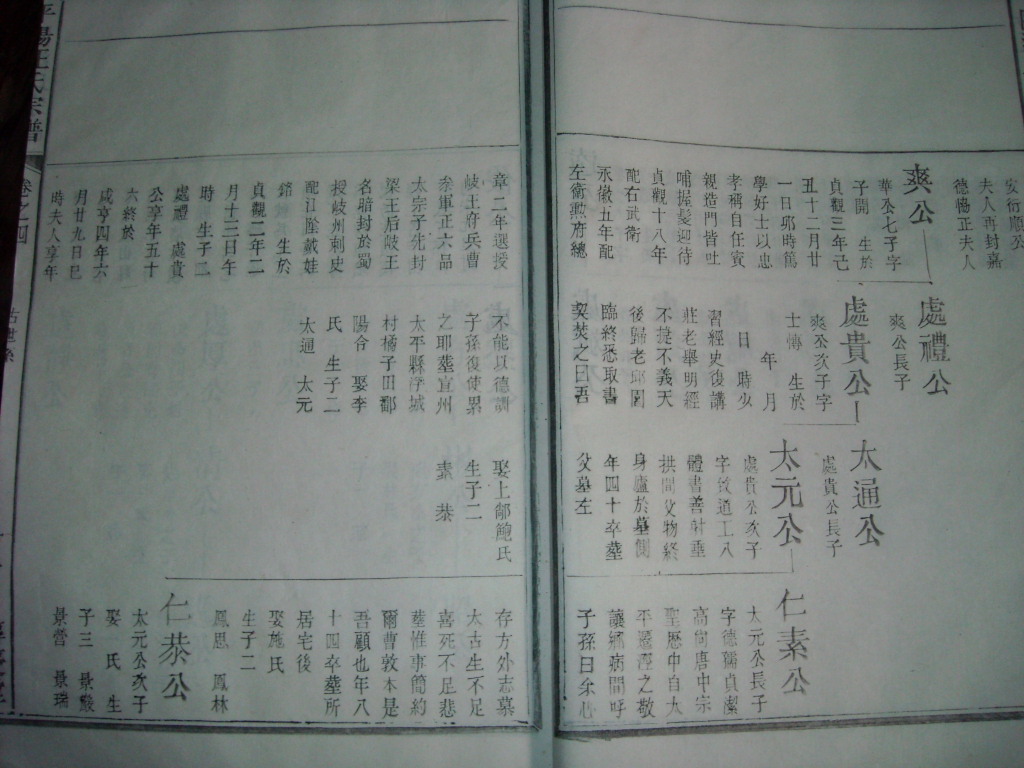 安衍慶恩
夫人再封嘉
德暢正夫人
爽公
華公七子字
子開 生於
貞觀三年己
丑十二月廿
一日邱時篤
學好士以忠
孝稱自任寅
親造門皆吐
哺握髮迎待
貞觀十八年
配右武衛
永徽五年配
左衛勲府總
章二年選授
岐王府兵曹
叅軍正六品
太宗子死封
梁王后岐王
名暗封於蜀
授岐州刺史
配江陰戴娃
銘 生於
貞觀二年二
月十三日午
時 生子二
處禮 處貴
公享年五十
六終於
咸亨四年六
月廿九日巳
時夫人享年
處禮公
爽公長子
處貴公
爽公次子字
士慱 生於
年 月
日 時少
習經史後講
莊老舉明經
不捷不義天
後歸老邱園
臨終悉取書
契焚之曰吾
不能以德訓
子孫復使累
之耶塟宣州
太平縣浮城
村橘子田鄱
陽令 娶李
氏 生子二
太通 太元
太通公
處貴公長子
太元公
處貴公次子
字致道工八
體書善射垂
拱間父物終
身廬於墓側
年四十卒塟
父墓左
娶上鄣鮑氏
生子二
素 恭
仁素公
太元公長子
字德儒貞潔
高尚唐中宗
聖歷中自九
平遷潭之敬
讓鄉病間呼
子孫曰余心
存方外志慕
太古生不足
喜死不足悲
塟惟事簡約
爾曹敦本是
吾顧也年八
十四卒塟所
居宅後
娶施氏
生子二
鳳思 鳳林
仁恭公
太元公次子
娶 氏 生
子三 景殿
景營 景瑞
平陽汪氏宗譜
卷之四